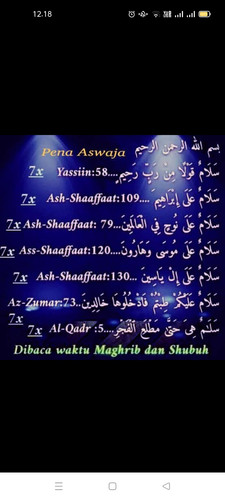 12.18
بسم الله الرحمن الرحيم
Pena Aswaja
سَلَامٌ قَوْلًا مِنْ رَبٍّ رَحِيمٍ....Yassiin:58 7x
سَلَامٌ عَلَى إِبْرَاهِيمَ ....Ash-Shaaffaat:109 7x
سَلَامٌ عَلَى نُوحٍ فِي الْعَالَمِينَ...Ash-Shaaffaat: 79 7x
سَلَامٌ عَلَى مُوسَى وَهَارُونَ....Ass-Shaaffaat:120 7x
سَلَامٌ عَلَى إِلْ يَاسِينَ....Ash-Shaaffaat:130 7x
سَلَامٌ عَلَيْكُمْ طِبْتُمْ فَادْخُلُوهَا خَالِدِينَ..Az-Zumar:73 7x
سَلَـٰمٌ هِىَ حَتَّىٰ مَطْلَعِ ٱلْفَجْرِ....Al-Qadr :5 7x
Dibaca waktu Maghrib dan Shubuh